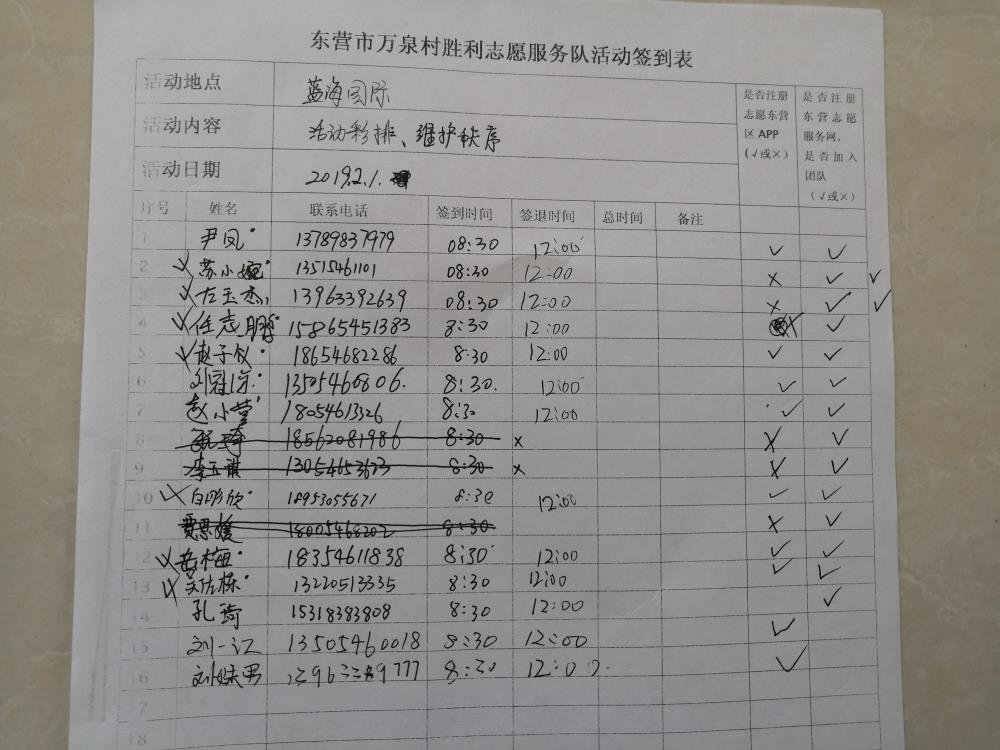 东营市万泉村胜利志愿服务队活动签到表
活动地点 蓝海国际
活动内容 活动彩排、维护秩序
活动日期 2019.2.1.
是否注册
志愿东营
区 APP
(√或×)
是否注册
东营志愿
服务网,
是否加入
团队
(√或×)
序号 姓名 联系电话 签到时间 签退时间 总时间 备注
1 尹凤 13789837979 08:30 12:00 √ √
2 √ 苏小婉 13515461101 08:30 12:00 × √ √
3 √ 左玉杰 13963392639 08:30 12:00 × √ √
4 √ 任志鹏 15865451383 8:30 12:00 × √
5 √ 赵子仪 18654682286 8:30 12:00 √ √
6 刘冠 13505460806. 8:30. 12:00 √ √
7 赵小莹 18054613326 8:30 12:00 √ √
8 18562081986 8:30 × × √
9 李玉琪 13054653673 8:30 × × √
10 √ 白彤欣 18953055671 8:30 12:00 √ √
11 贾思媛 18005468202 8:30 × √
12 √ 岳梅 18354611838 8:30 12:00 √ √
13 √ 吴佐栋 13220513335 8:30 12:00 √ √
14 孔琦 15318383808 8:30 12:00 √
15 刘一江 13505460018 8:30 12:00 √
16 刘妹男 8:30 12:00 √
17
18